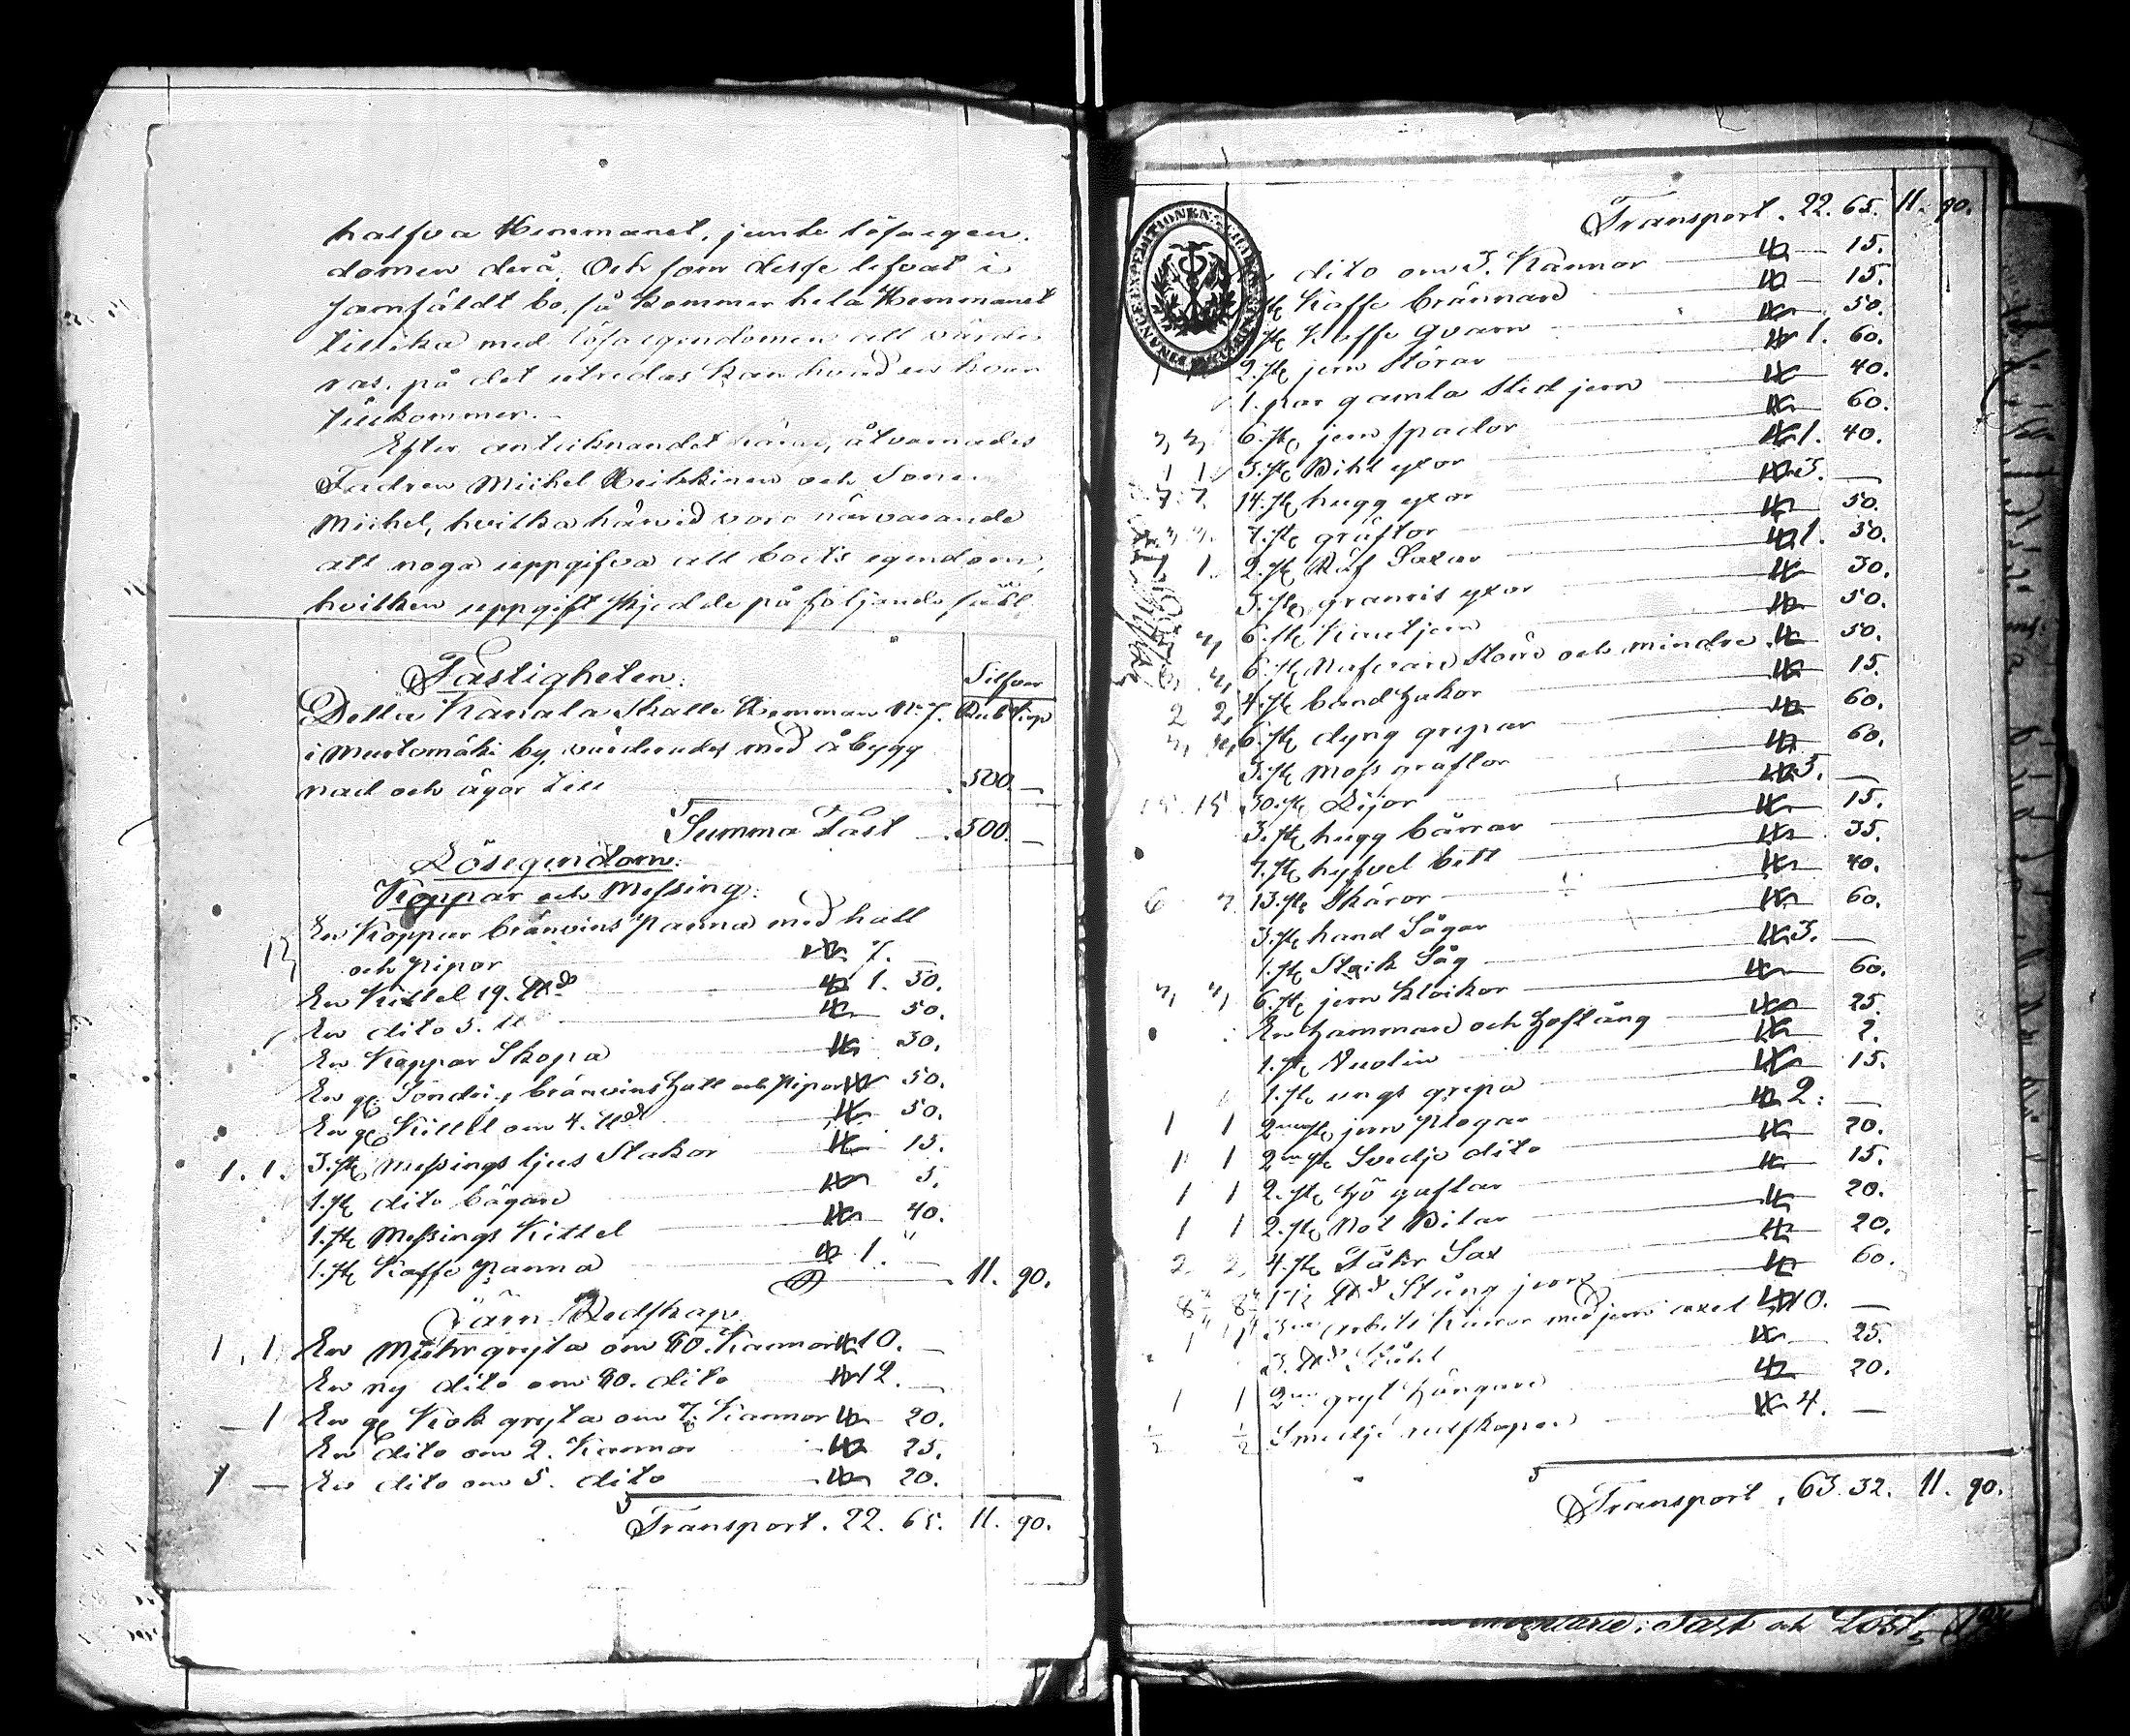 halfva Hemmanet, jemte lösegen
domen derå. Och som desse lefvat i
samfäldt bo, så kommer hela Hemmanet
tillika med lösegendomen att värde
ras, på det utredas kan hvad en hvar
tillkommer.
Efter antecknandet häraf, åtvarnades
Fadren Michel Heiskinen och Sonen
Michel, hvilka härvid voro närvarande
att noga uppgifva all boets egendom,
hvilken uppgift skjedde på följande sätt
Fastigheten. Silfver
Detta Kanala Skatte Hemman No 7. Rub Kop
i Mustomäki by, värderades med åbygg
nad och ägor till 500. —
Summa Fast 500. —
Lösegendom.
Koppar och Messing.
En Koppar bränvins Panna med hatt
och Pipor 7. —
En Kittel 19. ℔ 1. 50.
En dito 5. ℔ 50.
En Koppar Skopa 30.
En gl: Söndrig bränvins hatt och Pipor 50.
En gl Kittel om 4. ℔ 50.
1. 1. 3. st Messings ljus Stakar 15.
1. st dito bägare 5.
1. st Messings Kittel 40.
1. st Kaffe Panna 1. "
11. 90.
Järn Redskap
1. 1. En Muhrgryta om 60. Kannor 10. —
En ny dito om 60. dito 12. —
— 1 En gl Kok gryta om 7. Kannor 20.
En dito om 2. Kannor 25.
1 — En dito om 5. dito 20.
Transport. 22. 65. 11. 90.
Transport. 22. 65. 11. 90.
dito om 3. Kannor 15.
Kaffe brännare 15.
Kaffe qvarn 50.
2. st jern Störar 1. 60.
1. par gamla Sled jern 40.
6. st jern spador 60.
1 1 3. st Bihl yxor 1. 40.
7. 7. 14. st hugg yxor 3. —
7. st gräftor 50.
1 1. 2. st Räf Saxar 1. 50.
3. st granris yxor 30.
6. st Knutjern 50.
6. st Nafvare Störe och mindre 50.
2 2 4. st band hakar 15.
6. st dyng grepar 60.
3. st Moss gräftor 60.
15. 15 30. st Lijor 3. —
3. st hugg bärrar 15.
7. st hyfvel bett 35.
6 7. 13. st Skäror 40.
3. st hand Sågar 60.
1. st Stoik Såg 3. —
6. st jern Kloikor 60.
En Hammare och Hoftång 25.
1. st Nuolin 2.
1. st ungs grepa 15.
1 1 2ne st jern Plogar 2. —
1 1 2ne st Svedje dito 20.
1 1 2. st Hö gaflar 15.
1 1 2. st Not Bilar 20.
2. 2. 4. st Fåhr Sax 20.
17½ ℔ Stång jern 60.
3ne arbets Kärror med jern axel 10. —
3. ℔ Stål 25.
1 1 2ne gryt hängare 20.
½ ½ Smedje redskaper 4. —
Transport. 63. 32. 11. 90.
Fast och Löst